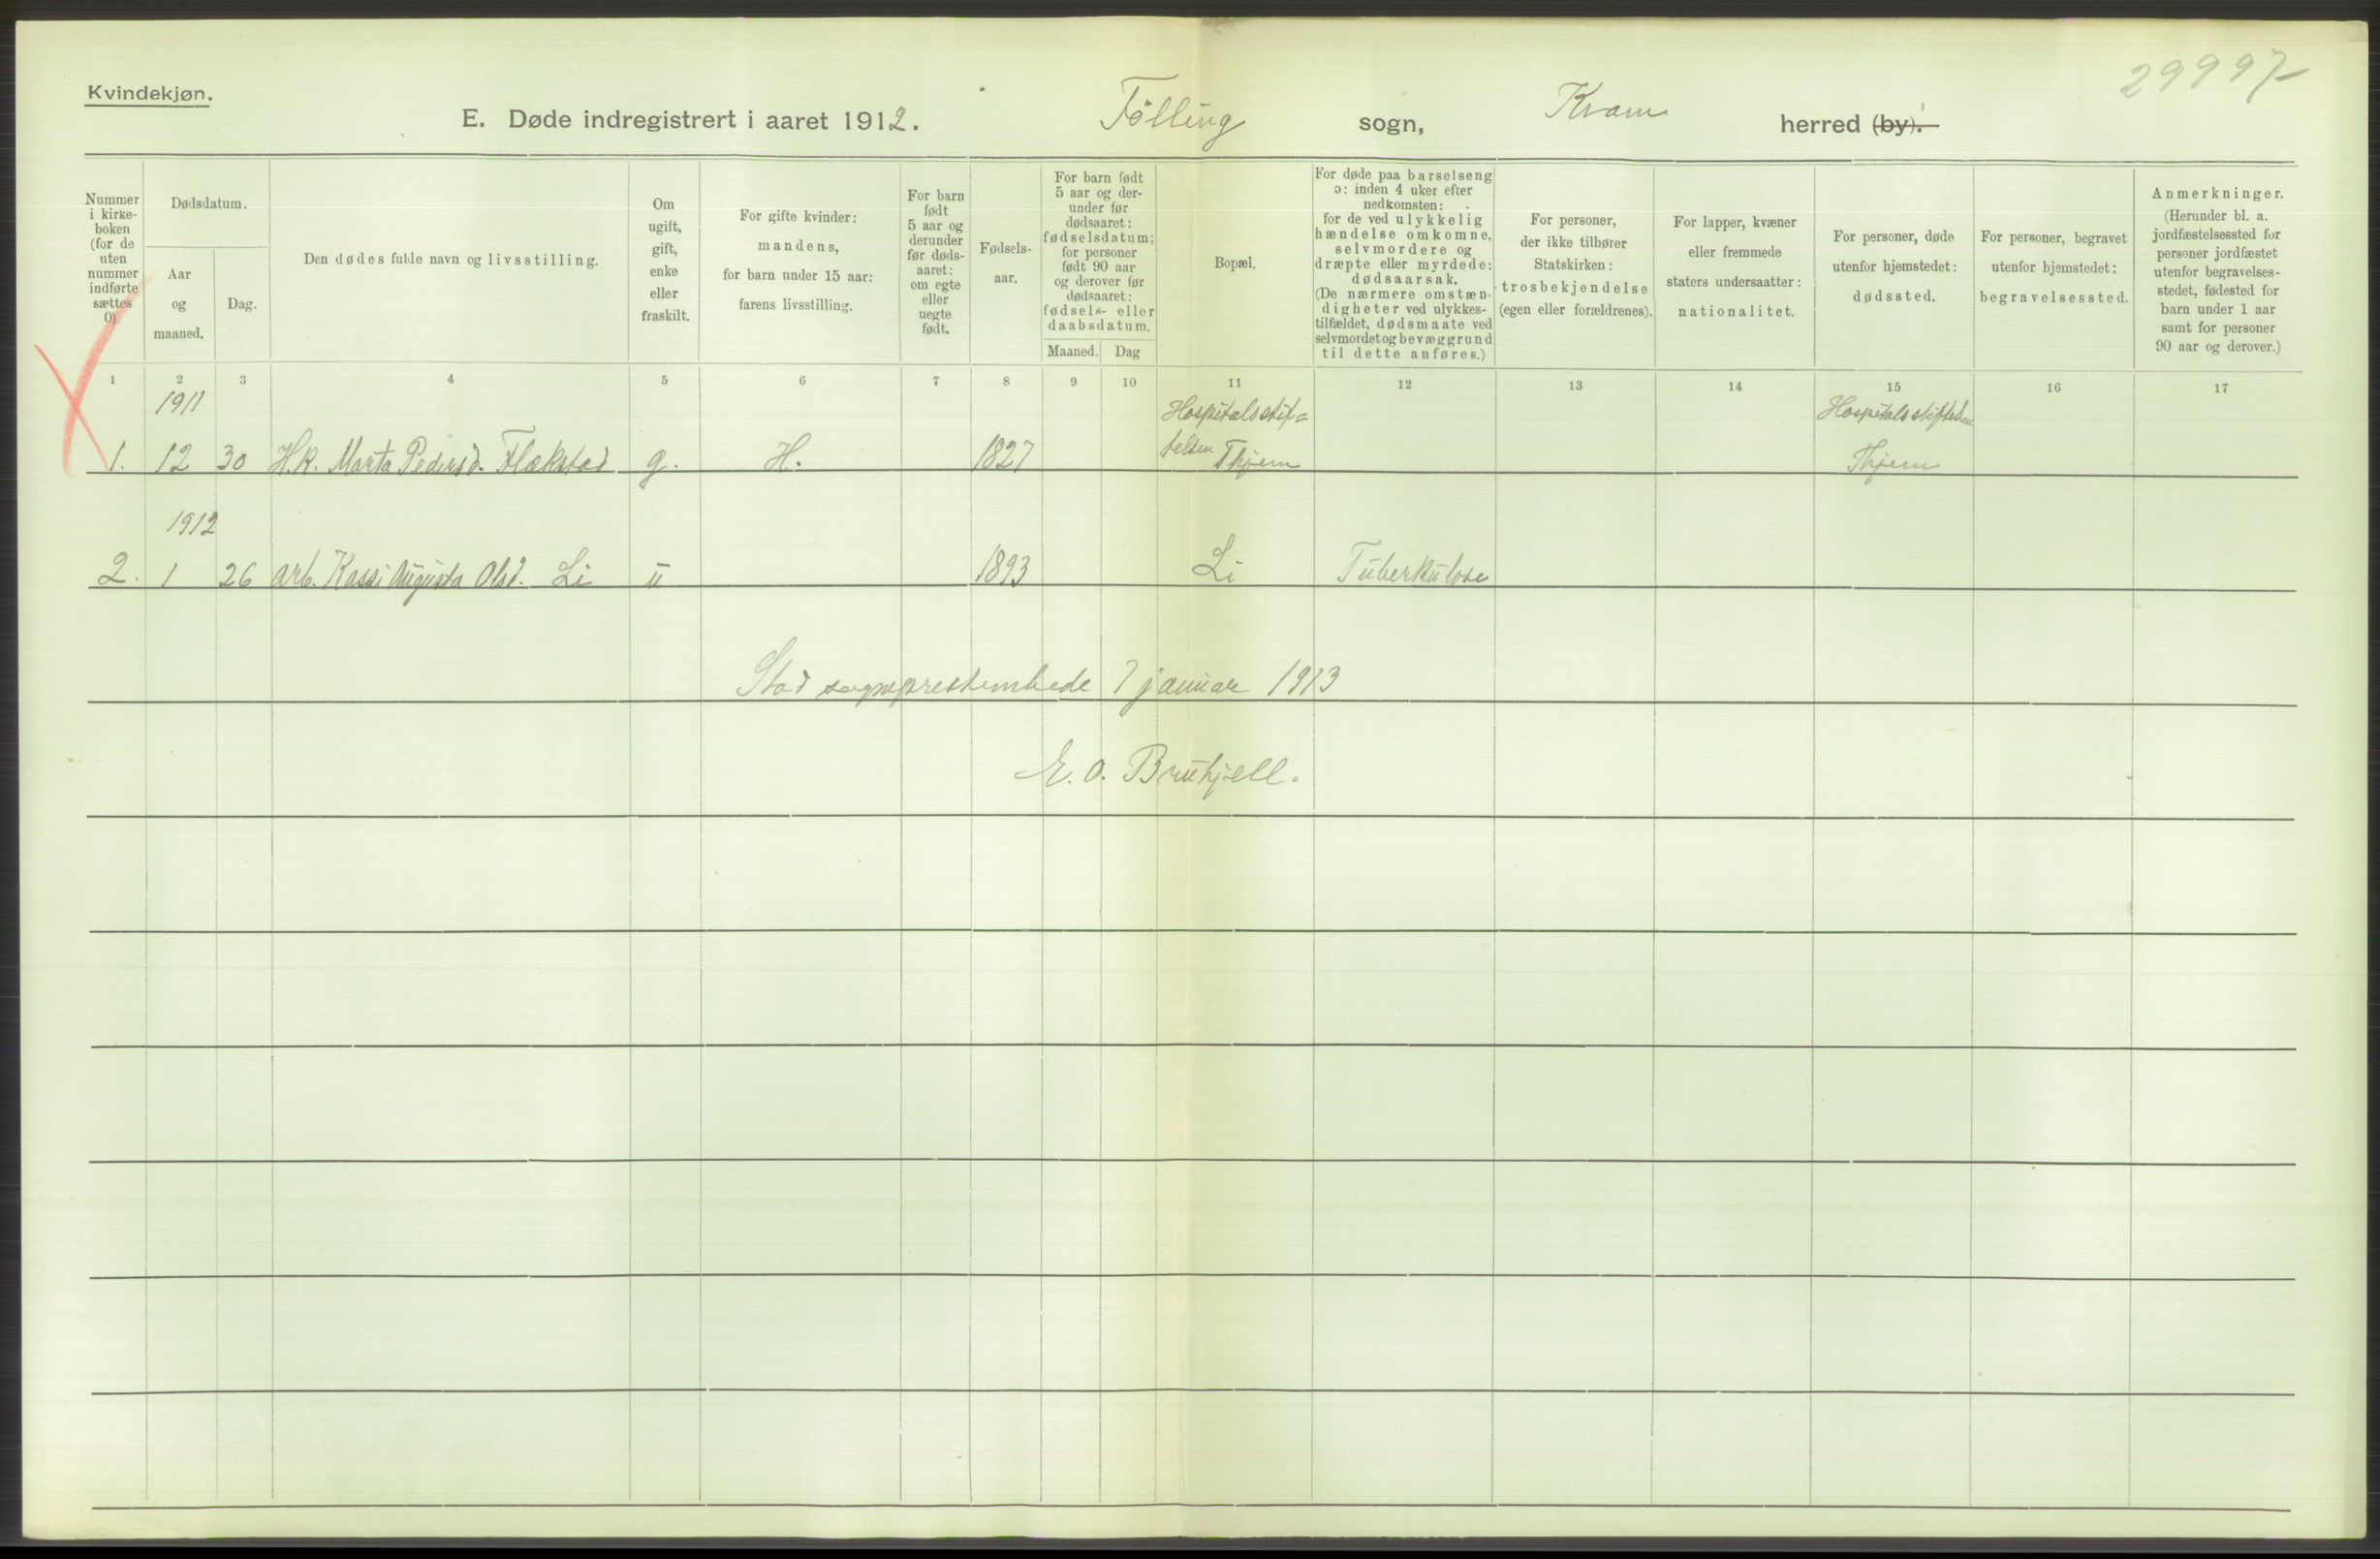 29997
Kvindekjøn.
E. Døde indregistrert i aaret 1912. Følling sogn, Kvam herred (by).
Nummer i kirke-boken (for de uten nummer indførte sættes 0).
Dødsdatum.
Aar og maaned.
Dag.
Den dødes fulde navn og livsstilling.
Om ugift, gift, enke eller fraskilt.
For gifte kvinder: mandens, for barn under 15 aar: farens livsstilling.
For barn født 5 aar og derunder før døds-aaret: om egte eller uegte født.
Fødsels-aar.
For barn født 5 aar og der-under før dødsaaret: fødselsdatum; for personer født 90 aar og derover før dødsaaret: fødsels- eller daabsdatum.
Maaned. Dag
Bopæl.
For døde paa barselseng ɔ: inden 4 uker efter nedkomsten: for de ved ulykkelig hændelse omkomne, selvmordere og dræpte eller myrdede: dødsaarsak. (De nærmere omstæn-digheter ved ulykkes-tilfældet, dødsmaate ved selvmordet og bevæggrund til dette anføres.)
For personer, der ikke tilhører Statskirken: trosbekjendelse (egen eller forældrenes).
For lapper, kvæner eller fremmede staters undersaatter: nationalitet.
For personer, døde utenfor hjemstedet: dødssted.
For personer, begravet utenfor hjemstedet: begravelsessted.
Anmerkninger. (Herunder bl. a. jordfæstelsessted for personer jordfæstet utenfor begravelses-stedet, fødested for barn under 1 aar samt for personer 90 aar og derover.)
1 2 3 4 5 6 7 8 9 10 11 12 13 14 15 16 17
1911 Hospitalsstif= Hospitalsstiftelsen
1. 12 30 H.k. Marta Pedersd. Flækstad g. H. 1827 telsen Thjem Thjem
1912
2. 1 26 arb. Kassi Augusta Olsd. Li u 1893 Li Tuberkulose
Stod sogneprestembede 7 januar 1913
E. O. Bruhjell.